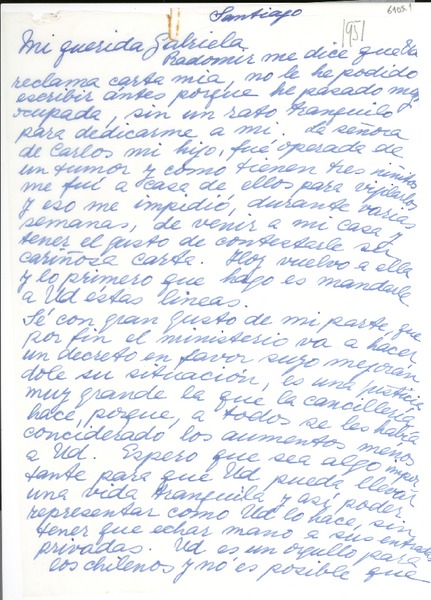 6105.1
Santiago
1951
Mi querida Gabriela
Radomir me dice que Ud
reclama carta mia, no le he podido
escribir ántes porque he pasado muy
ocupada, sin un rato tranquilo
para dedicarme a mi. La señora
de Carlos mi hijo, fué operada de
un tumor y como tienen tres niñitos
me fuí a casa de ellos para vigilarlos
y eso me impidió, durante varias
semanas, de venir a mi casa y
tener el gusto de contestarle su
cariñosa carta. Hoy vuelvo a ella
y lo primero que hago es mandarle
a Ud éstas lineas.
Sé con gran gusto de mi parte, que
por fin el ministerio va a hacer
un decreto en favor suyo mejorán
dole su situación, es una justicia
muy grande la que la cancillería
hace, porque, a todos se les había
conciderado los aumentos menos
a Ud. Espero que sea algo impor
tante para que Ud pueda llevar
una vida tranquila y así poder
representar como Ud lo hace, sin
tener que echar mano a sus entradas
privadas. Ud es un orgullo para
los chilenos y nó es posible que